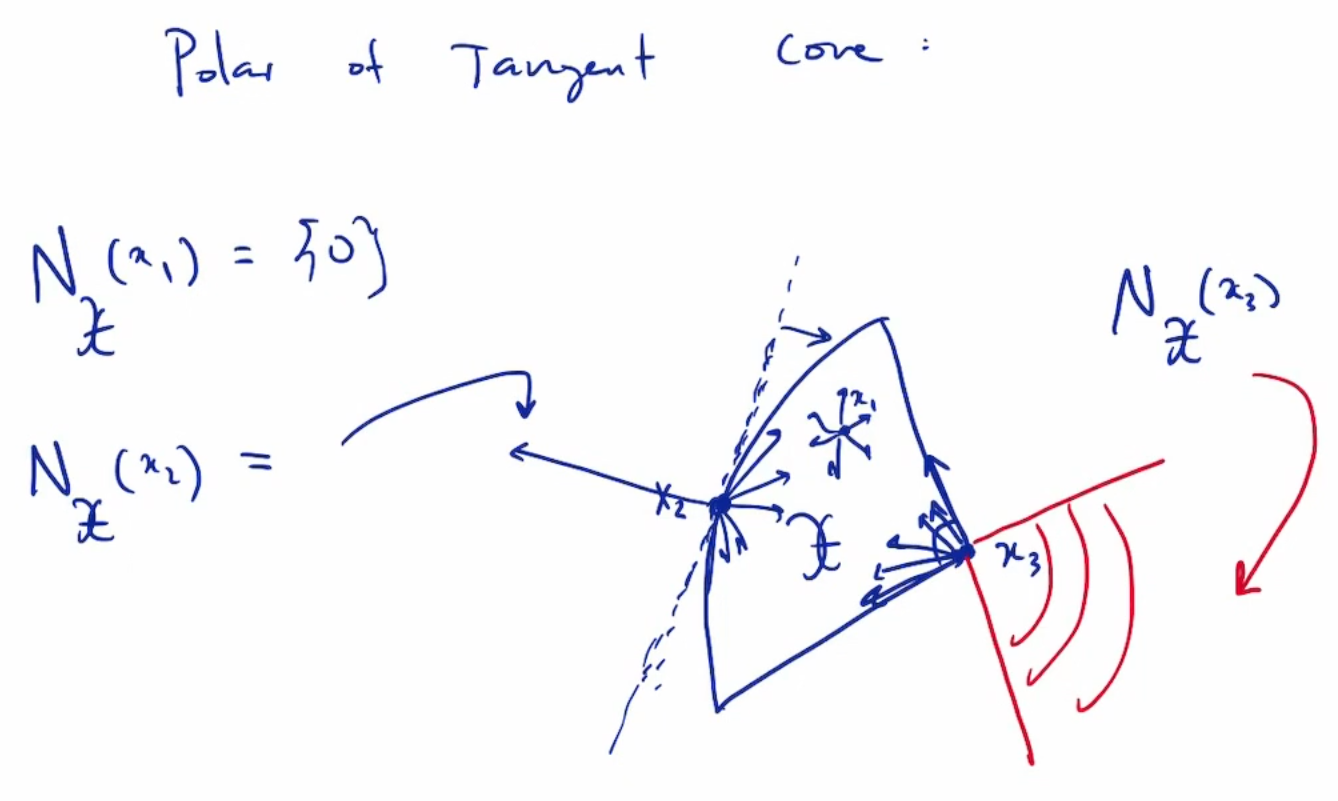 Polar of Tangent Cone :
N_𝒳(x₁) = {0}
N_𝒳(x₃)
x₁
N_𝒳(x₂) =
x₂
𝒳
x₃